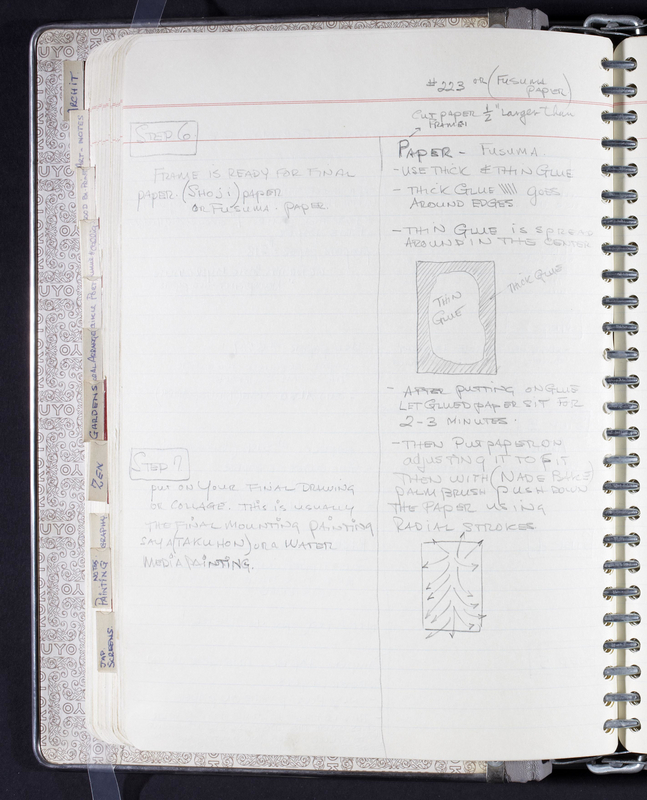 #223 OR (FUSUMA
PAPER)
CUT PAPER ½" Larger than
FRAME
STEP 6
FRAME IS READY FOR FINAL
PAPER. (SHOJI) PAPER
OR FUSUMA. PAPER.
STEP 7
PUT ON YOUR FINAL DRAWING
OR COLLAGE. THIS IS USUALLY
THE FINAL MOUNTING PAINTING
SAY A (TAKUHON) OR A WATER
MEDIA PAINTING.
PAPER - FUSUMA
- USE THICK & THIN GLUE
- THICK GLUE goes
AROUND EDGES
- THIN GLUE IS SPREAD
AROUND IN THE CENTER
THIN
GLUE
THICK GLUE
- AFTER PUTTING ON GLUE
LET GLUED PAPER SIT FOR
2-3 MINUTES.
- THEN PUT PAPER ON
ADJUSTING IT TO FIT
THEN WITH (NADE BAKE)
PALM BRUSH PUSH DOWN
THE PAPER USING
RADIAL STROKES
ARCHIT
NOTES
GARDENS
ZEN
GRAPHS
NOTES
PAINTING
JAP
SCREENS